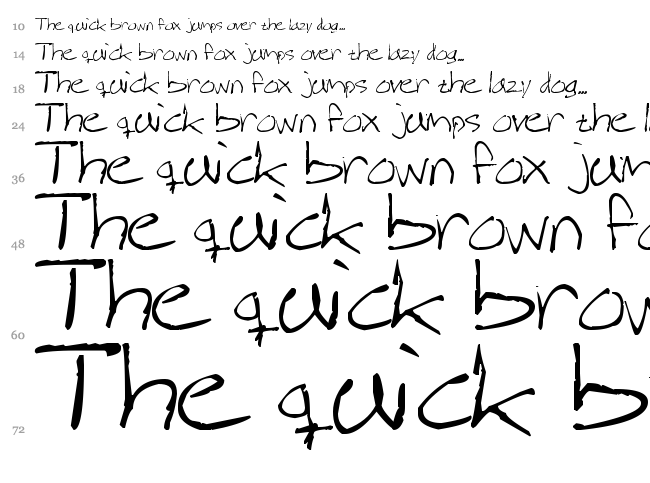 10 The quick brown fox jumps over the lazy dog...
14 The quick brown fox jumps over the lazy dog...
18 The quick brown fox jumps over the lazy dog...
24 The quick brown fox jumps over the l
36 The quick brown fox jum
48 The quick brown fo
60 The quick brow
72 The quick b